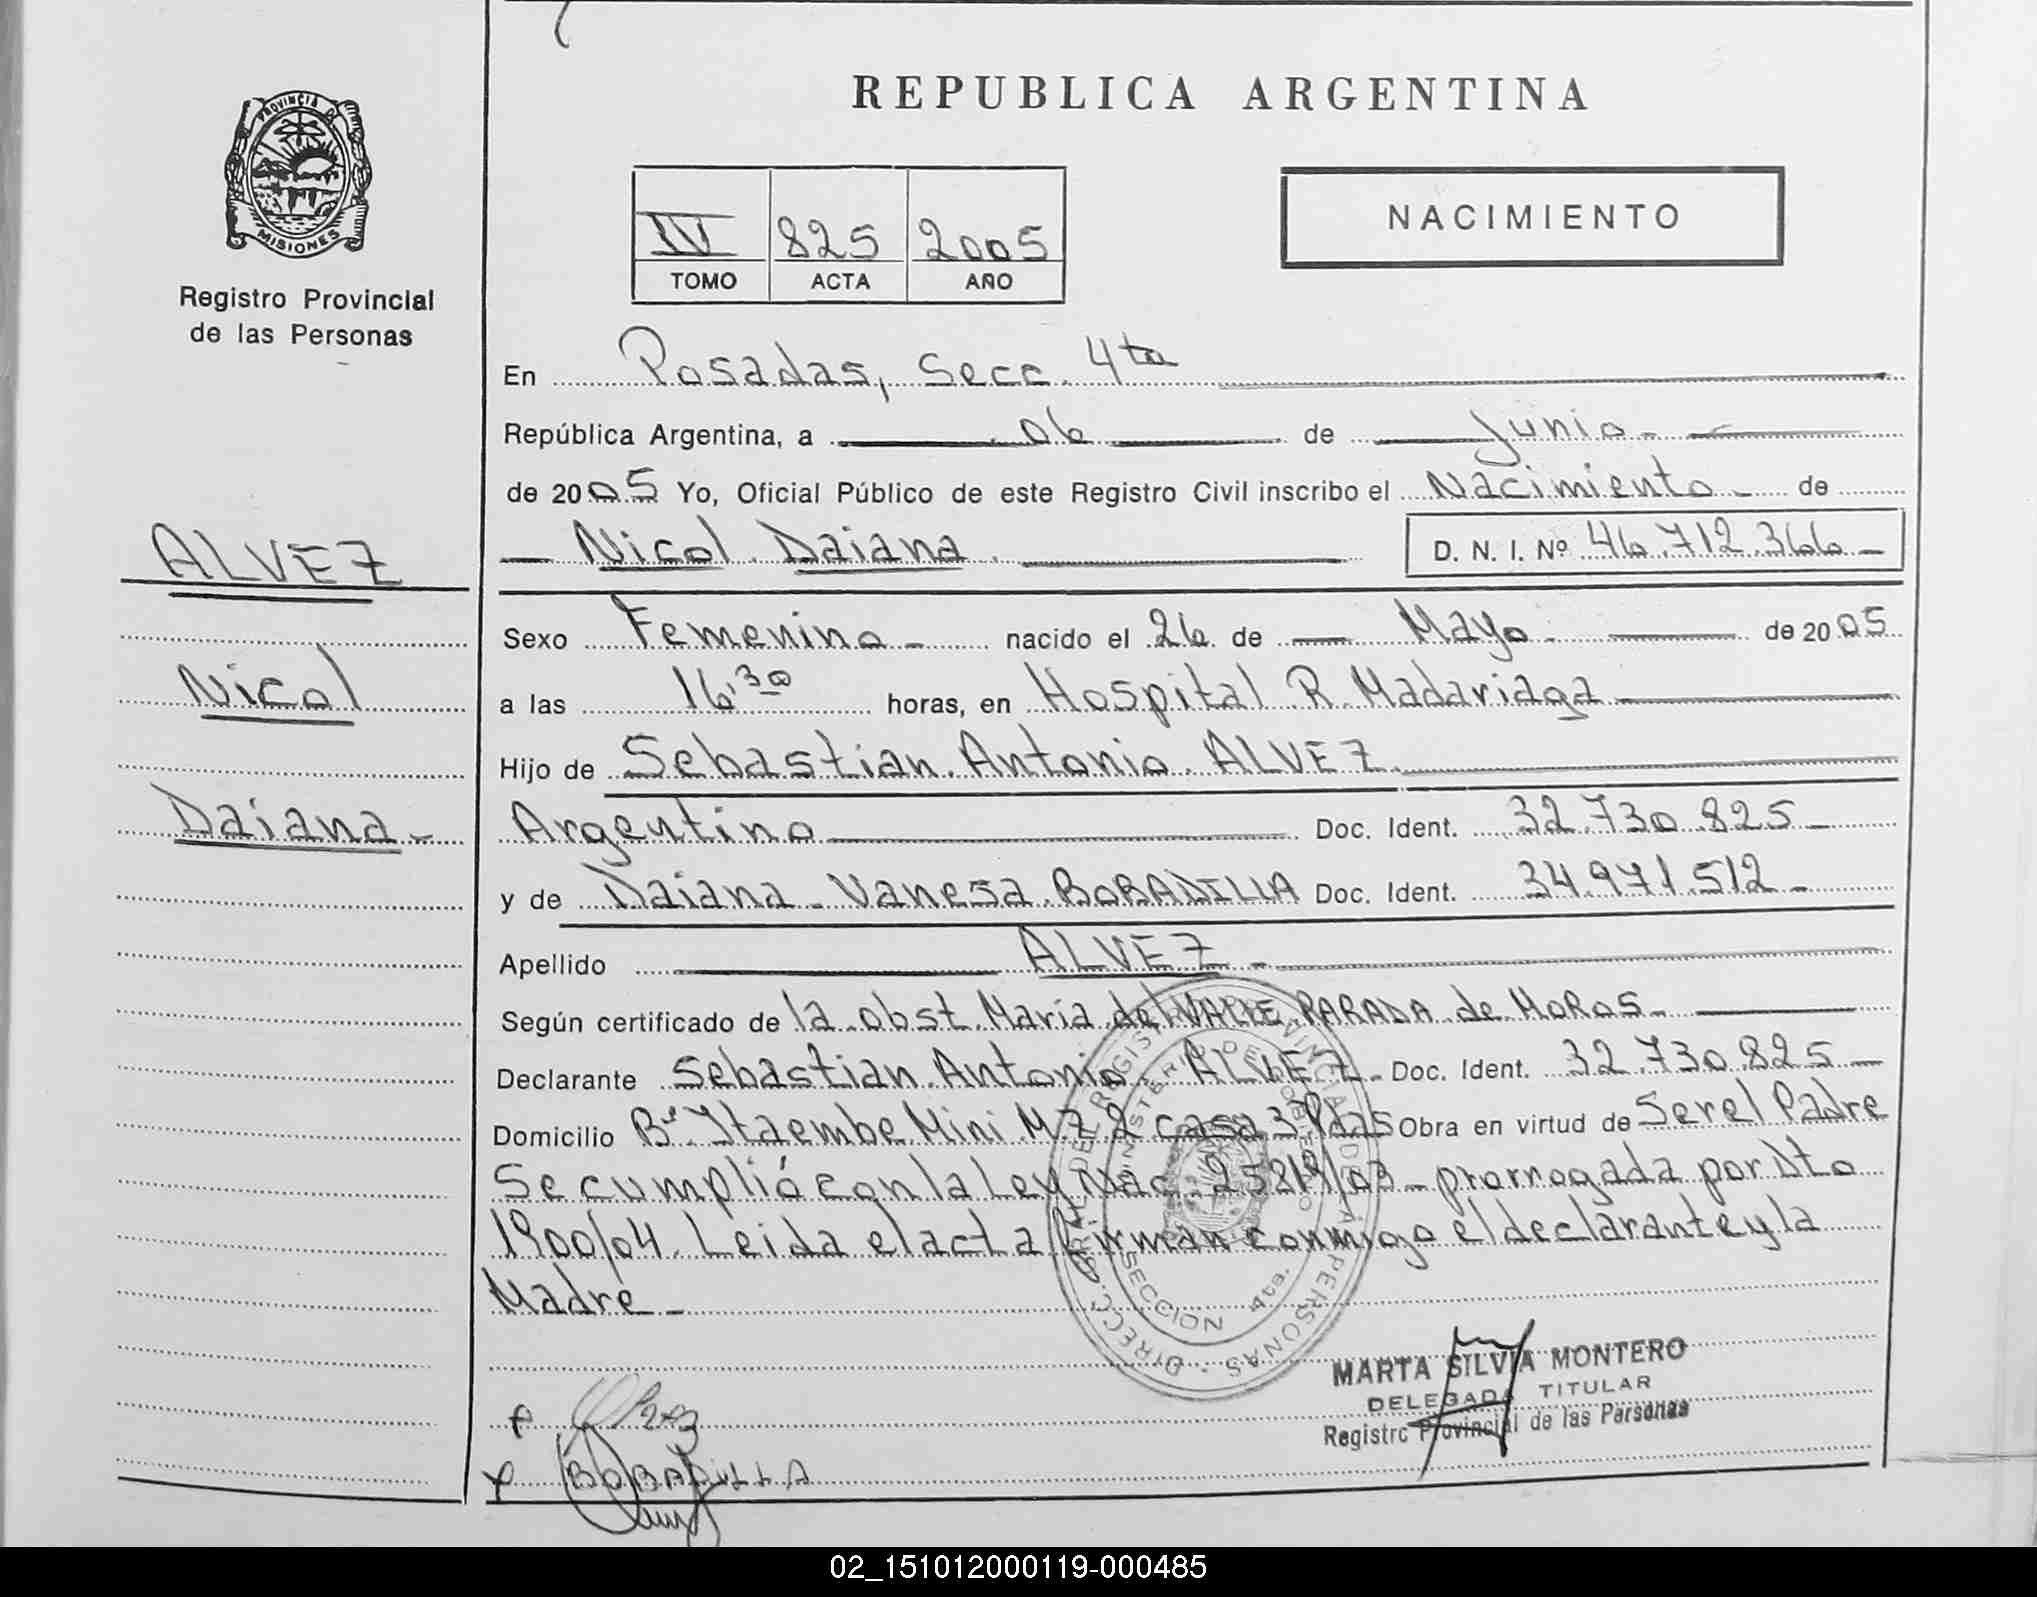 REPUBLICA ARGENTINA
PROVINCIA DE
MISIONES
Registro Provincial
de las Personas
IV 825 2005
TOMO ACTA AÑO
NACIMIENTO
En Posadas, Secc. 4ta
República Argentina, a 06 de Junio
de 2005 Yo, Oficial Público de este Registro Civil inscribo el Nacimiento de
Nicol Daiana D. N. I. Nº 46.712.366
ALVEZ
Nicol
Daiana
Sexo Femenino nacido el 26 de Mayo de 2005
a las 16,30 horas, en Hospital R. Madariaga
Hijo de Sebastian Antonio ALVEZ
Argentino Doc. Ident. 32.730.825
y de Daiana Vanesa BOBADILLA Doc. Ident. 34.971.512
Apellido ALVEZ
Según certificado de la obst. Maria del VALLE PARADA de MOROS
Declarante Sebastian Antonio ALVEZ Doc. Ident. 32.730.825
Domicilio Bº Itaembe Mini MZ 2 casa 3 Pdas Obra en virtud de Ser el Padre
Se cumplió con la Ley Nac. 25819/03 prorrogada por Dto
1900/04. Leida el acta firman conmigo el declarante y la
Madre
DIRECC. GRAL DEL REGISTRO PROVINCIAL DE LAS PERSONAS
MINISTERIO DE GOBIERNO
SECCION 4ta.
MARTA SILVIA MONTERO
DELEGADA TITULAR
Registro Provincial de las Personas
BOBADILLA
02_151012000119-000485